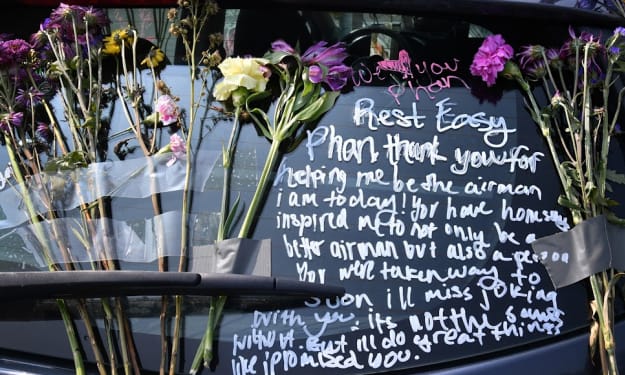 you
Phan
Rest Easy
Phan, thank you for
helping me be the airman
i am today! You have
inspired me to not only be a
better airman but also a person
You were taken way to
soon i'll miss joking
with you. its not the same
without. but i'll do great things
like i promised you.